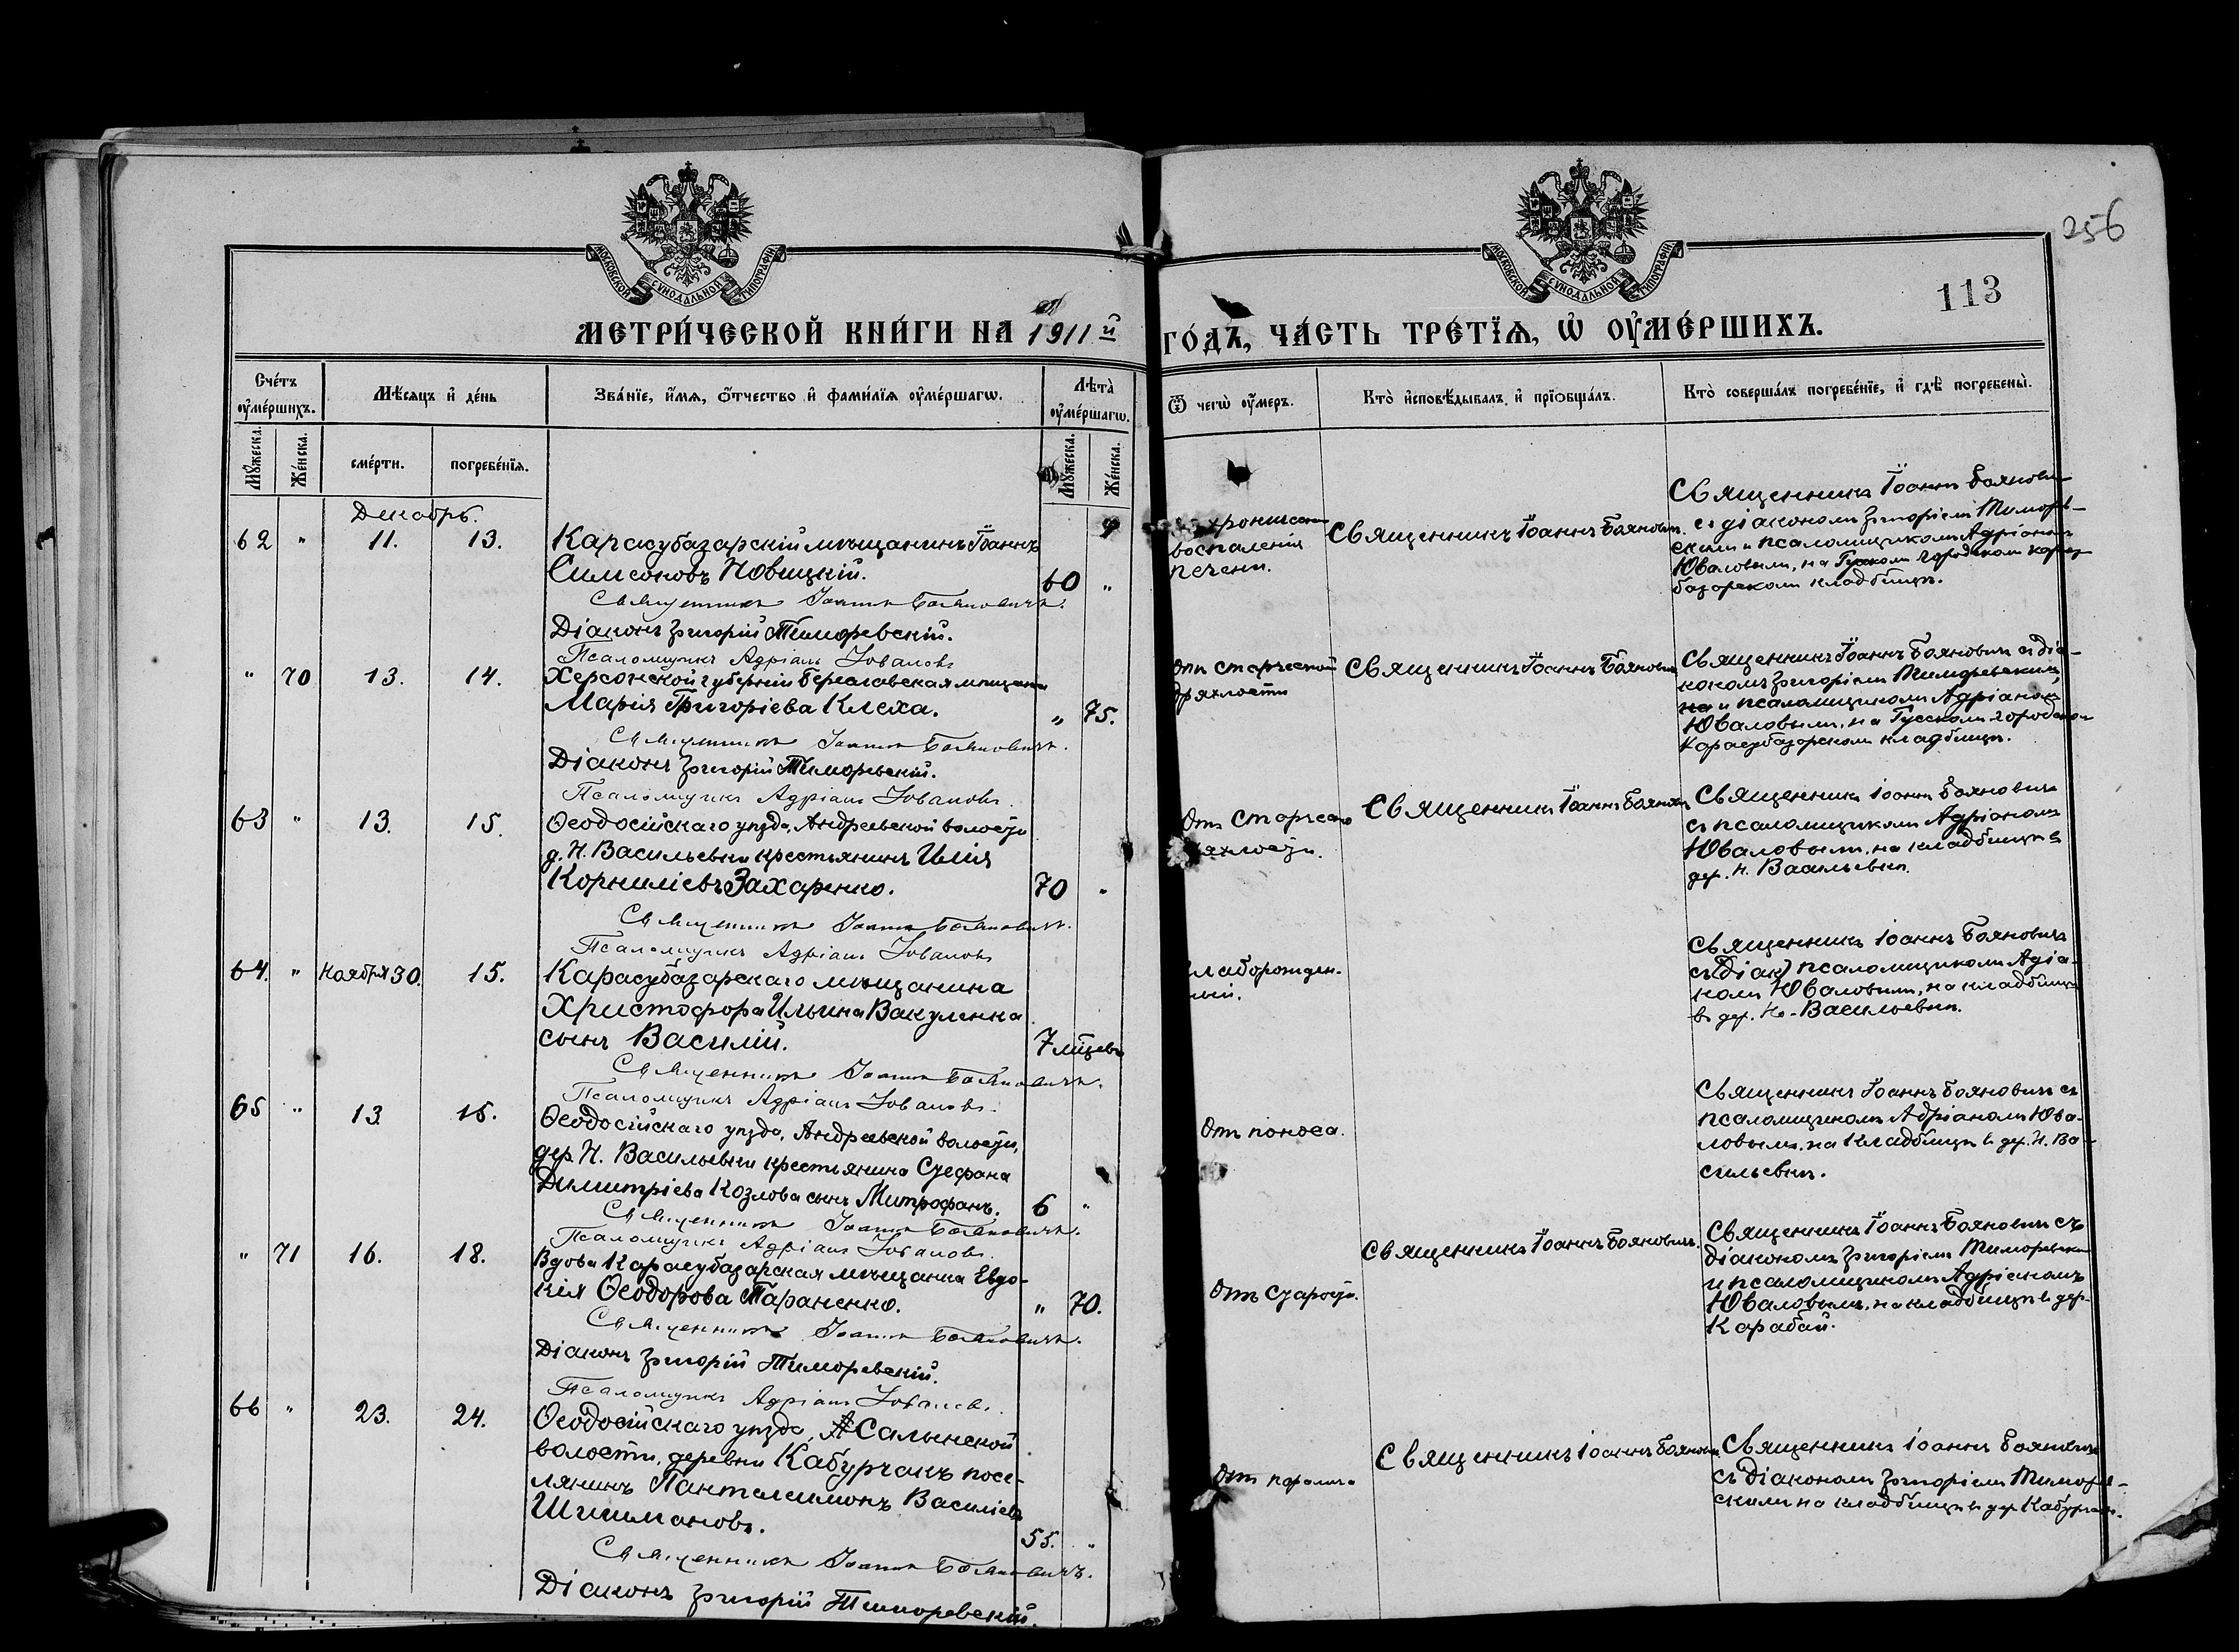 256
113
МОСКОВСКОЙ СѴНОДАЛЬНОЙ ТИПОГРАФІИ
МОСКОВСКОЙ СѴНОДАЛЬНОЙ ТИПОГРАФІИ
МЕТРИ́ЧЕСКОЙ КНИ́ГИ НА 1911й
ГО́ДЪ, ЧА́СТЬ ТРЕ́ТЇѦ, Ѡ҆ ОУ҆МЕ́РШИХЪ.
Сче́тъ оу҆ме́ршихъ.
Мѣ́сяцъ и҆ де́нь
Зва́нїе, и҆́мя, ѻ҆́тчество и҆ фами́лїя оу҆ме́ршагѡ.
Лѣта̀ оу҆ме́ршагѡ.
Мꙋ́жеска.
Же́нска.
сме́рти.
погребе́нїя.
Мꙋ́жеска.
Же́нска.
Ѿ чегѡ̀ оу҆́меръ.
Кто̀ и҆сповѣ́дывалъ и҆ прїѻбща́лъ.
Кто̀ соверша́лъ погребе́нїе, и҆ гдѣ̀ погребены̀.
Декабрь.
62 " 11. 13.
Карасубазарскій мѣщанинъ Іоаннъ
Симеоновъ Новицкій.
60 "
Священникъ Іоаннъ Бояновичъ.
Діаконъ Григорій Тиморевскій.
Псаломщикъ Адріанъ Юваловъ
воспаленія
печени.
Священникъ Іоаннъ Бояновичъ.
Священникъ Іоаннъ Боянович
съ діакономъ Григоріемъ Тиморев-
скимъ и псаломщикомъ Адріаномъ
Юваловымъ, на городском карасу
базарскомъ кладбищѣ.
" 70 13. 14.
Херсонской губерніи Бериславская мѣщанка
Марія Григоріева Клеха.
" 75.
Священникъ Іоаннъ Бояновичъ.
Діаконъ Григорій Тиморевскій.
Псаломщикъ Адріанъ Юваловъ.
Отъ старческой
дряхлости
Священникъ Іоаннъ Бояновичъ
Священникъ Іоаннъ Бояновичъ съ діа-
кономъ Григоріемъ Тиморевскимъ,
на и псаломщикомъ Адріаномъ
Юваловымъ, на Русскомъ городском
Карасубазарскомъ кладбищѣ.
63 " 13. 15.
Ѳеодосійскаго уѣзда, Андреевской волости
д. Н. Васильевки крестьянинъ Илія
Корниліевъ Захаренко.
70 "
Священникъ Іоаннъ Бояновичъ.
Псаломщикъ Адріанъ Юваловъ
Отъ старческо
Священникъ Іоаннъ Боянович
Священникъ Іоаннъ Бояновичъ
съ псаломщикомъ Адріаномъ
Юваловымъ, на кладбищѣ в
дер. Н. Васильевкѣ.
64. " Ноября 30. 15.
Карасубазарскаго мѣщанина
Христофора Ильина Вакуленка
сынъ Василій.
7 мѣсяцевъ
Священникъ Іоаннъ Бояновичъ.
Псаломщикъ Адріанъ Юваловъ.
лаборожден-
ный.
Священникъ Іоаннъ Бояновичъ
съ (діак) псаломщикомъ Адіа-
номъ Юваловымъ, на кладбищѣ
въ дер. Н.-Васильевкѣ.
65 " 13 15.
Ѳеодосійскаго уѣзда, Андреевской волости,
дер. Н. Васильевки крестьянина Стефана
Димитріева Козлова сынъ Митрофанъ.
6 "
Священникъ Іоаннъ Бояновичъ.
Псаломщикъ Адріанъ Юваловъ.
Отъ поноса.
Священникъ Іоаннъ Бояновичъ съ
псаломщикомъ Адріаномъ Юва-
ловымъ, на кладбищѣ в дер. Н. Ва-
сильевкѣ.
" 71 16. 18.
Вдова Карасубазарская мѣщанка Евдо-
кія Ѳеодорова Тараненко.
" 70.
Священникъ Іоаннъ Бояновичъ.
Діаконъ Григорій Тиморевскій.
Псаломщикъ Адріанъ Юваловъ.
Отъ старости.
Священникъ Іоаннъ Бояновичъ.
Священникъ Іоаннъ Бояновичъ съ
діакономъ Григоріемъ Тиморевским
и псаломщикомъ Адріаномъ
Юваловымъ, на кладбищѣ в дер.
Карабай.
66 " 23. 24.
Ѳеодосійскаго уѣзда, Салынской
волости, деревни Кабурчакъ посе-
лянинъ Пантелеимонъ Василіевъ
Шишмановъ.
55. "
Священникъ Іоаннъ Бояновичъ.
Діаконъ Григорій Тиморевскій.
Отъ паралича
Священникъ Іоаннъ Бояновичъ
Священникъ Іоаннъ Бояновичъ
съ діакономъ Григоріемъ Тиморев-
скимъ на кладбищѣ в дер. Кабурчакъ.